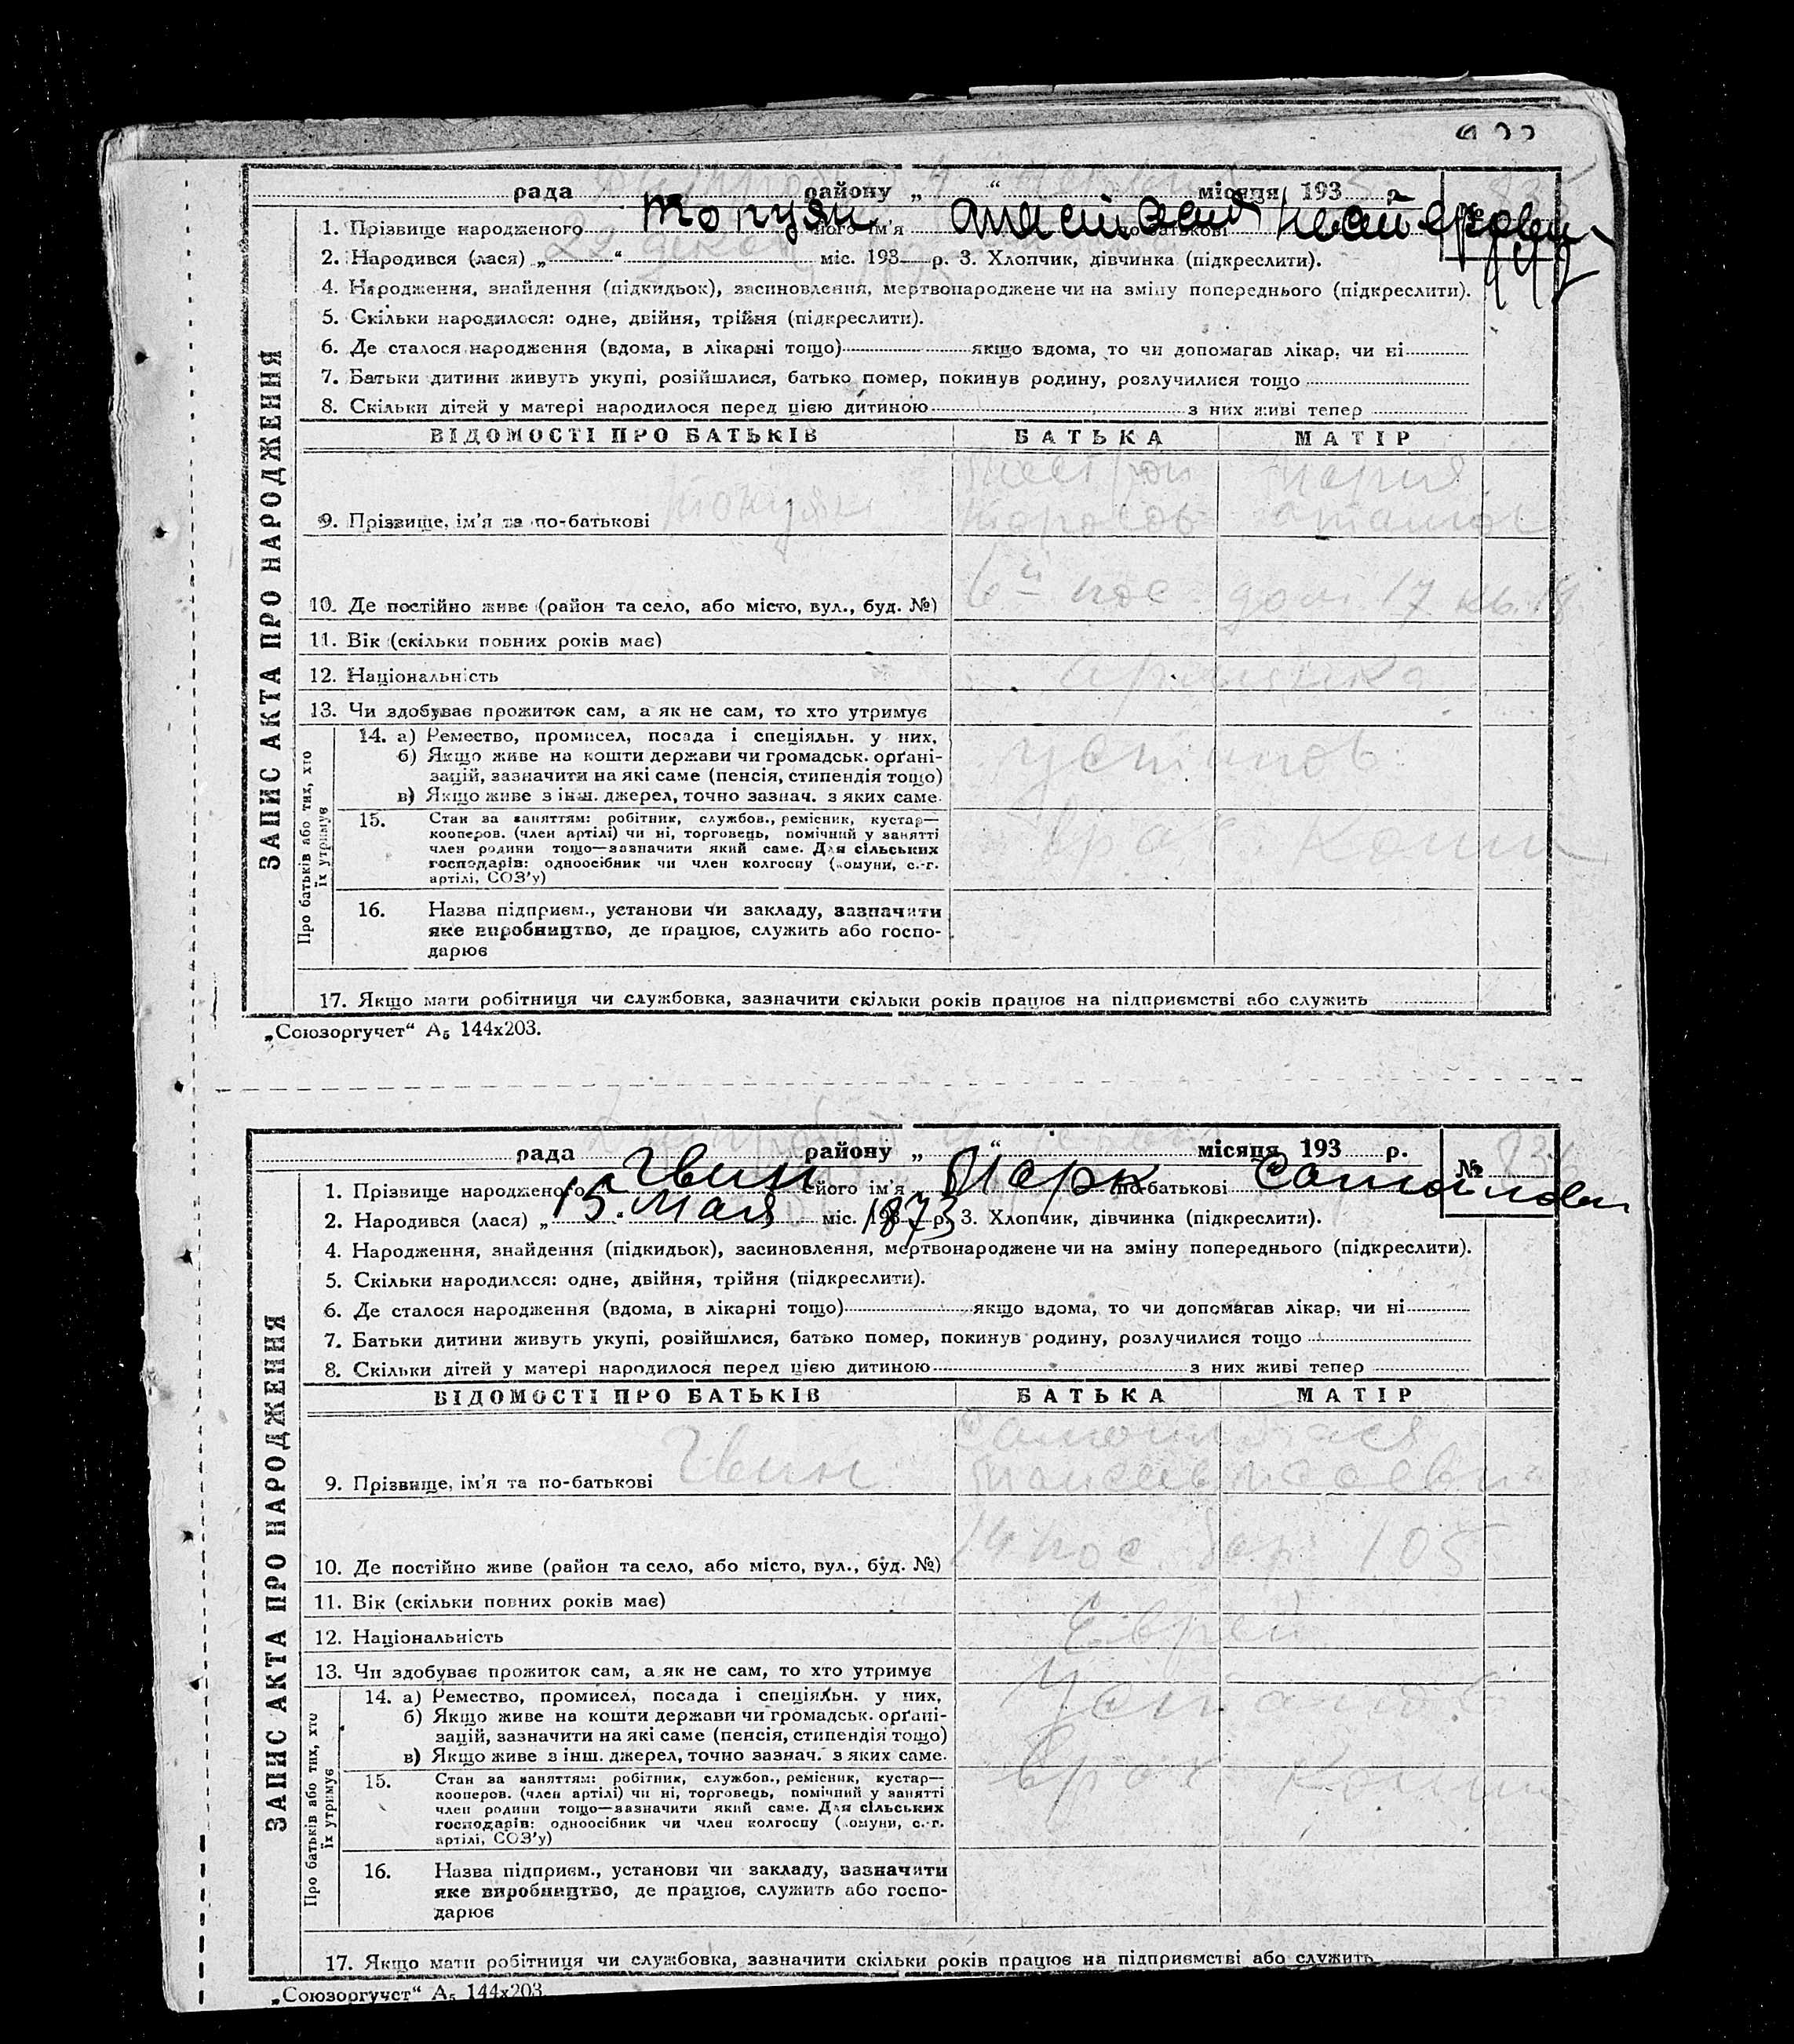 рада району „ “ місяця 193 р.
1. Прізвище народженого Топузян його ім'я по-батькові
2. Народився (лася) „ “ міс. 193 р. 3. Хлопчик, дівчинка (підкреслити).
4. Народження, знайдення (підкидьок), засиновлення, мертвонароджене чи на зміну попереднього (підкреслити).
5. Скільки народилося: одне, двійня, трійня (підкреслити).
6. Де сталося народження (вдома, в лікарні тощо) якщо вдома, то чи допомагав лікар, чи ні
7. Батьки дитини живуть укупі, розійшлися, батько помер, покинув родину, розлучилися тощо
8. Скільки дітей у матері народилося перед цією дитиною з них живі тепер
ЗАПИС АКТА ПРО НАРОДЖЕННЯ
ВІДОМОСТІ ПРО БАТЬКІВ БАТЬКА МАТІР
Мария
9. Прізвище, ім'я та по-батькові
10. Де постійно живе (район та село, або місто, вул., буд. №) 6й пос. дом 17 кв. 18
11. Вік (скільки повних років має)
12. Національність
13. Чи здобуває прожиток сам, а як не сам, то хто утримує
Про батьків або тих, хто їх утримує
14. а) Ремество, промисел, посада і спеціяльн. у них,
б) Якщо живе на кошти держави чи громадськ. орґані-
зацій, зазначити на які саме (пенсія, стипендія тощо)
в) Якщо живе з інш. джерел, точно зазнач. з яких саме.
15. Стан за заняттям: робітник, службов., ремісник, кустар—
кооперов. (член артілі) чи ні, торговець, помічний у занятті
член родини тощо—зазначити який саме. Для сільських
господарів: одноосібник чи член колгоспу (комуни, с.-г.
артілі, СОЗ'у)
16. Назва підприєм., установи чи закладу, зазначити
яке виробництво, де працює, служить або госпо-
дарює
17. Якщо мати робітниця чи службовка, зазначити скільки років працює на підприємстві або служить
„Союзоргучет“ А₅ 144х203.
рада району „ “ місяця 193 р. № 836
1. Прізвище народженого Гвин його ім'я Марк по-батькові Самойлович
2. Народився (лася) „ 15 “ мая міс. 1873 р. 3. Хлопчик, дівчинка (підкреслити).
4. Народження, знайдення (підкидьок), засиновлення, мертвонароджене чи на зміну попереднього (підкреслити).
5. Скільки народилося: одне, двійня, трійня (підкреслити).
6. Де сталося народження (вдома, в лікарні тощо) якщо вдома, то чи допомагав лікар, чи ні
7. Батьки дитини живуть укупі, розійшлися, батько помер, покинув родину, розлучилися тощо
8. Скільки дітей у матері народилося перед цією дитиною з них живі тепер
ЗАПИС АКТА ПРО НАРОДЖЕННЯ
ВІДОМОСТІ ПРО БАТЬКІВ БАТЬКА МАТІР
9. Прізвище, ім'я та по-батькові Гвин
10. Де постійно живе (район та село, або місто, вул., буд. №) 14 пос. бар. 105
11. Вік (скільки повних років має)
12. Національність Еврей
13. Чи здобуває прожиток сам, а як не сам, то хто утримує
Про батьків або тих, хто їх утримує
14. а) Ремество, промисел, посада і спеціяльн. у них,
б) Якщо живе на кошти держави чи громадськ. орґані-
зацій, зазначити на які саме (пенсія, стипендія тощо)
в) Якщо живе з інш. джерел, точно зазнач. з яких саме.
15. Стан за заняттям: робітник, службов., ремісник, кустар—
кооперов. (член артілі) чи ні, торговець, помічний у занятті
член родини тощо—зазначити який саме. Для сільських
господарів: одноосібник чи член колгоспу (комуни, с.-г.
артілі, СОЗ'у)
16. Назва підприєм., установи чи закладу, зазначити
яке виробництво, де працює, служить або госпо-
дарює
17. Якщо мати робітниця чи службовка, зазначити скільки років працює на підприємстві або служить
„Союзоргучет“ А₅ 144х203.